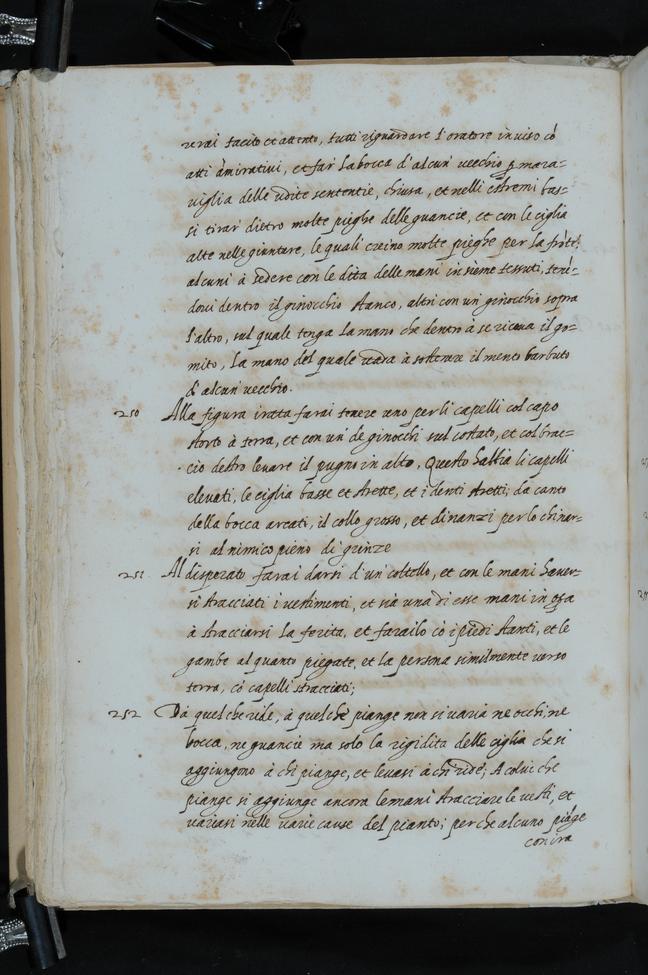 verai tacito et attento, tutti riguardare l'oratore in viso cõ
atti amirativi, et far la bocca d'alcun vecchio p mara=
viglia delle udite sententie, chiusa, et nelli estremi bas=
si tirar dietro molte pieghe delle guancie, et con le ciglia
alte nelle giunture, le quali creino molte pieghe per la frõte
alcuni à sedere con le dita delle mani insieme tessuti, tenē=
dovi dentro il ginocchio stanco, altri con un ginocchio sopra
l'altro, sul quale tenga la mano che dentro à se riceva il go=
mito, la mano del quale vada à sostenere il mento barbuto
d'alcun vecchio.
250 Alla figura irata farai tenere uno per li capelli col capo
storto à terra, et con un de ginocchi sul costato, et col brac=
cio destro levare il pugno in alto, Questo habbia li capelli
elevati, le ciglia basse et strette, et i denti stretti; da canto
della bocca arcati, il collo grosso, et dinanzi per lo chinar=
si al nimico pieno di grinze
251 Al disperato farai darsi d'un coltello, et con le mani haver=
si stracciati i vestimenti, et sia una di esse mani in opa
à stracciarsi la ferita, et farailo cõ i piedi stanti, et le
gambe alquanto piegate, et la persona similmente verso
terra, cõ capelli stracciati;
252 Da quel che ride, à quel che piange non si varia ne occhi, ne
bocca, ne guancie ma solo la rigidita delle ciglia che si
aggiungono à chi piange, et levasi à chi ride; A colui che
piange si aggiunge ancora le mani stracciare le vesti, et
variasi nelle varie cause del pianto; perche alcuno piãge
con ira